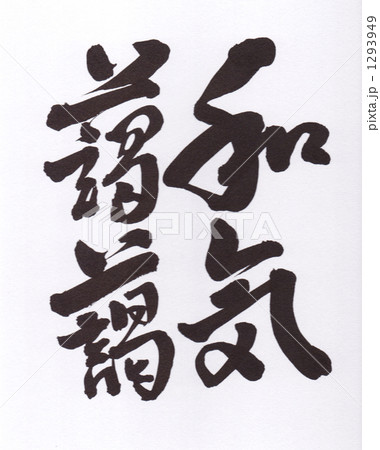 和気
藹藹
PIXTA
pixta.jp - 1293949